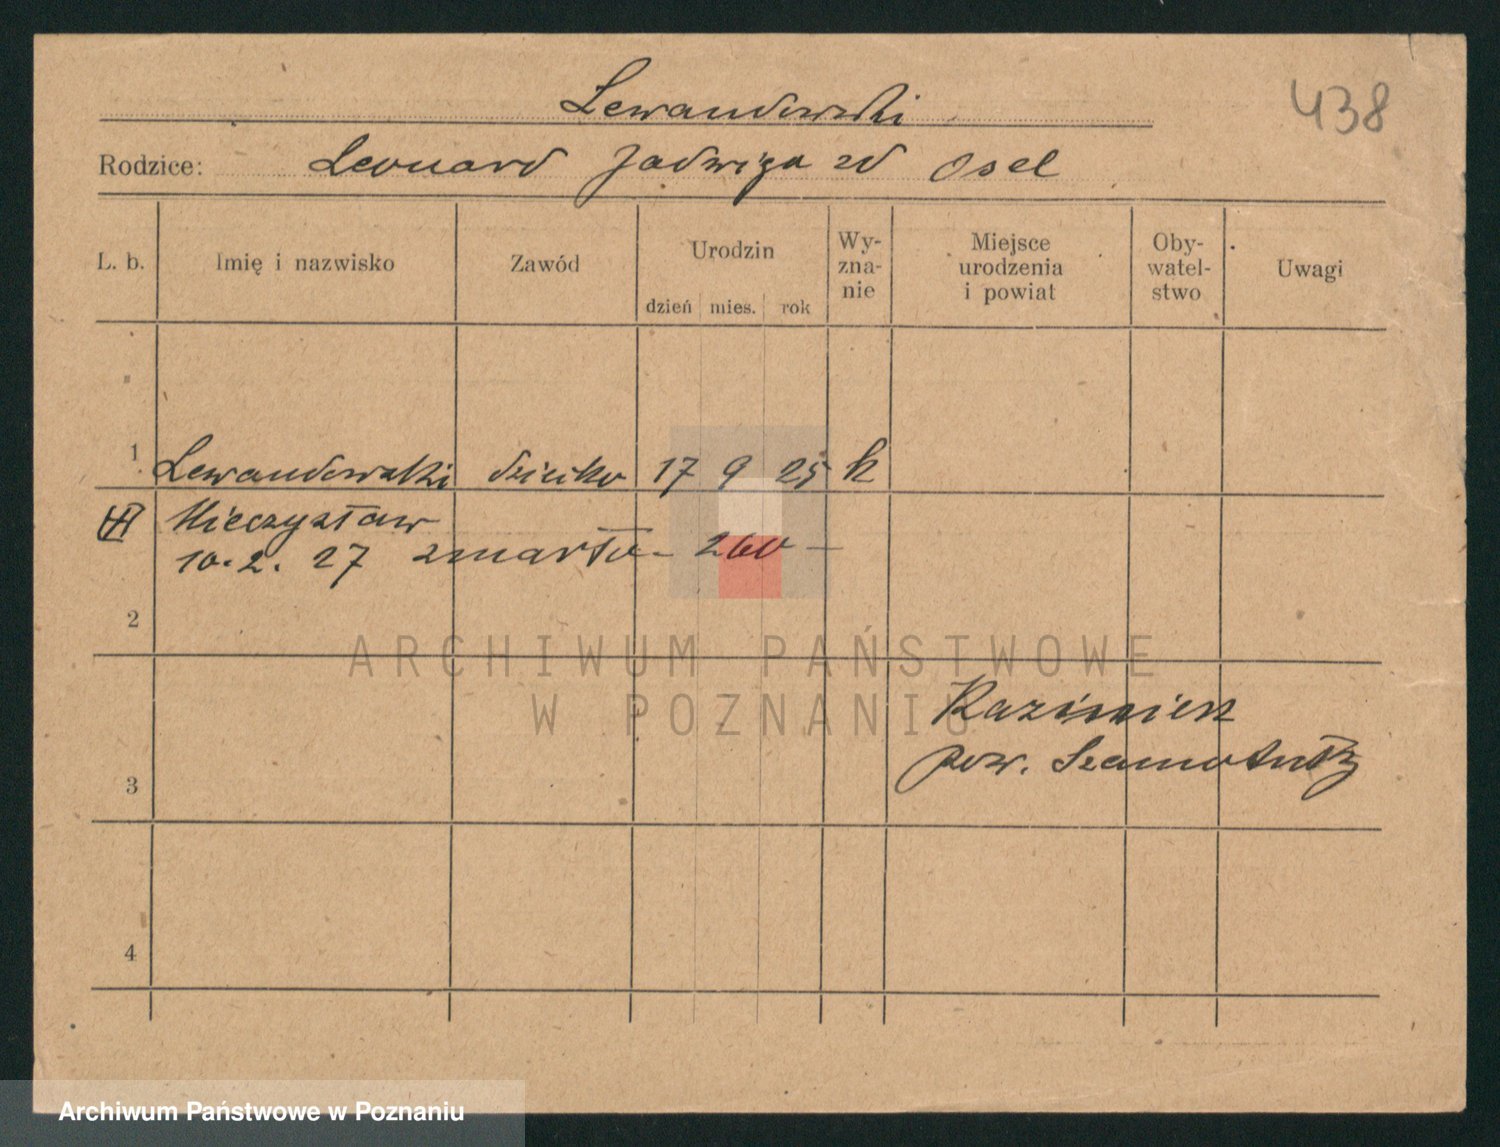 438
Lewandowski
Rodzice: Leonard Jadwiga zd Osel
L. b. Imię i nazwisko Zawód Urodzin dzień mies. rok Wy-zna-nie Miejsce urodzenia i powiat Oby-watel-stwo Uwagi
1 Lewandowski dziecko 17 9 25 k
Mieczysław
10. 2. 27 zmarło - 260 -
2
Kazimierz
pow. Szamotuły
3
4
ARCHIWUM PAŃSTWOWE
W POZNANIU
Archiwum Państwowe w Poznaniu